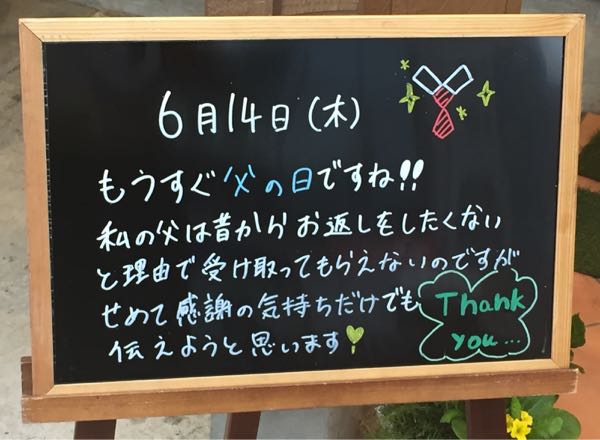 6月14日(木)
もうすぐ父の日ですね!!
私の父は昔からお返しをしたくない
と理由で受け取ってもらえないのですが
せめて感謝の気持ちだけでも
伝えようと思います
Thank
you...